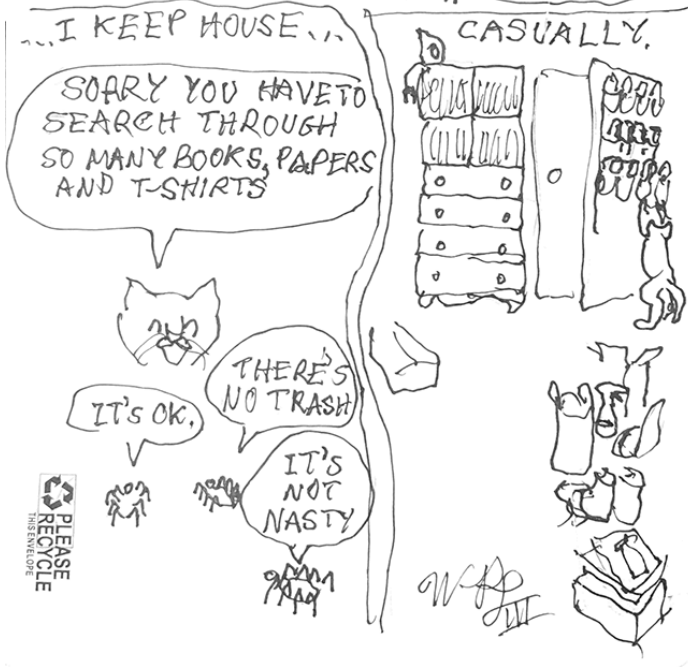 ...I KEEP HOUSE...
SORRY YOU HAVE TO
SEARCH THROUGH
SO MANY BOOKS, PAPERS
AND T-SHIRTS
IT'S OK.
THERE'S
NO TRASH
IT'S
NOT
NASTY
PLEASE
RECYCLE
THIS ENVELOPE
CASUALLY.
III